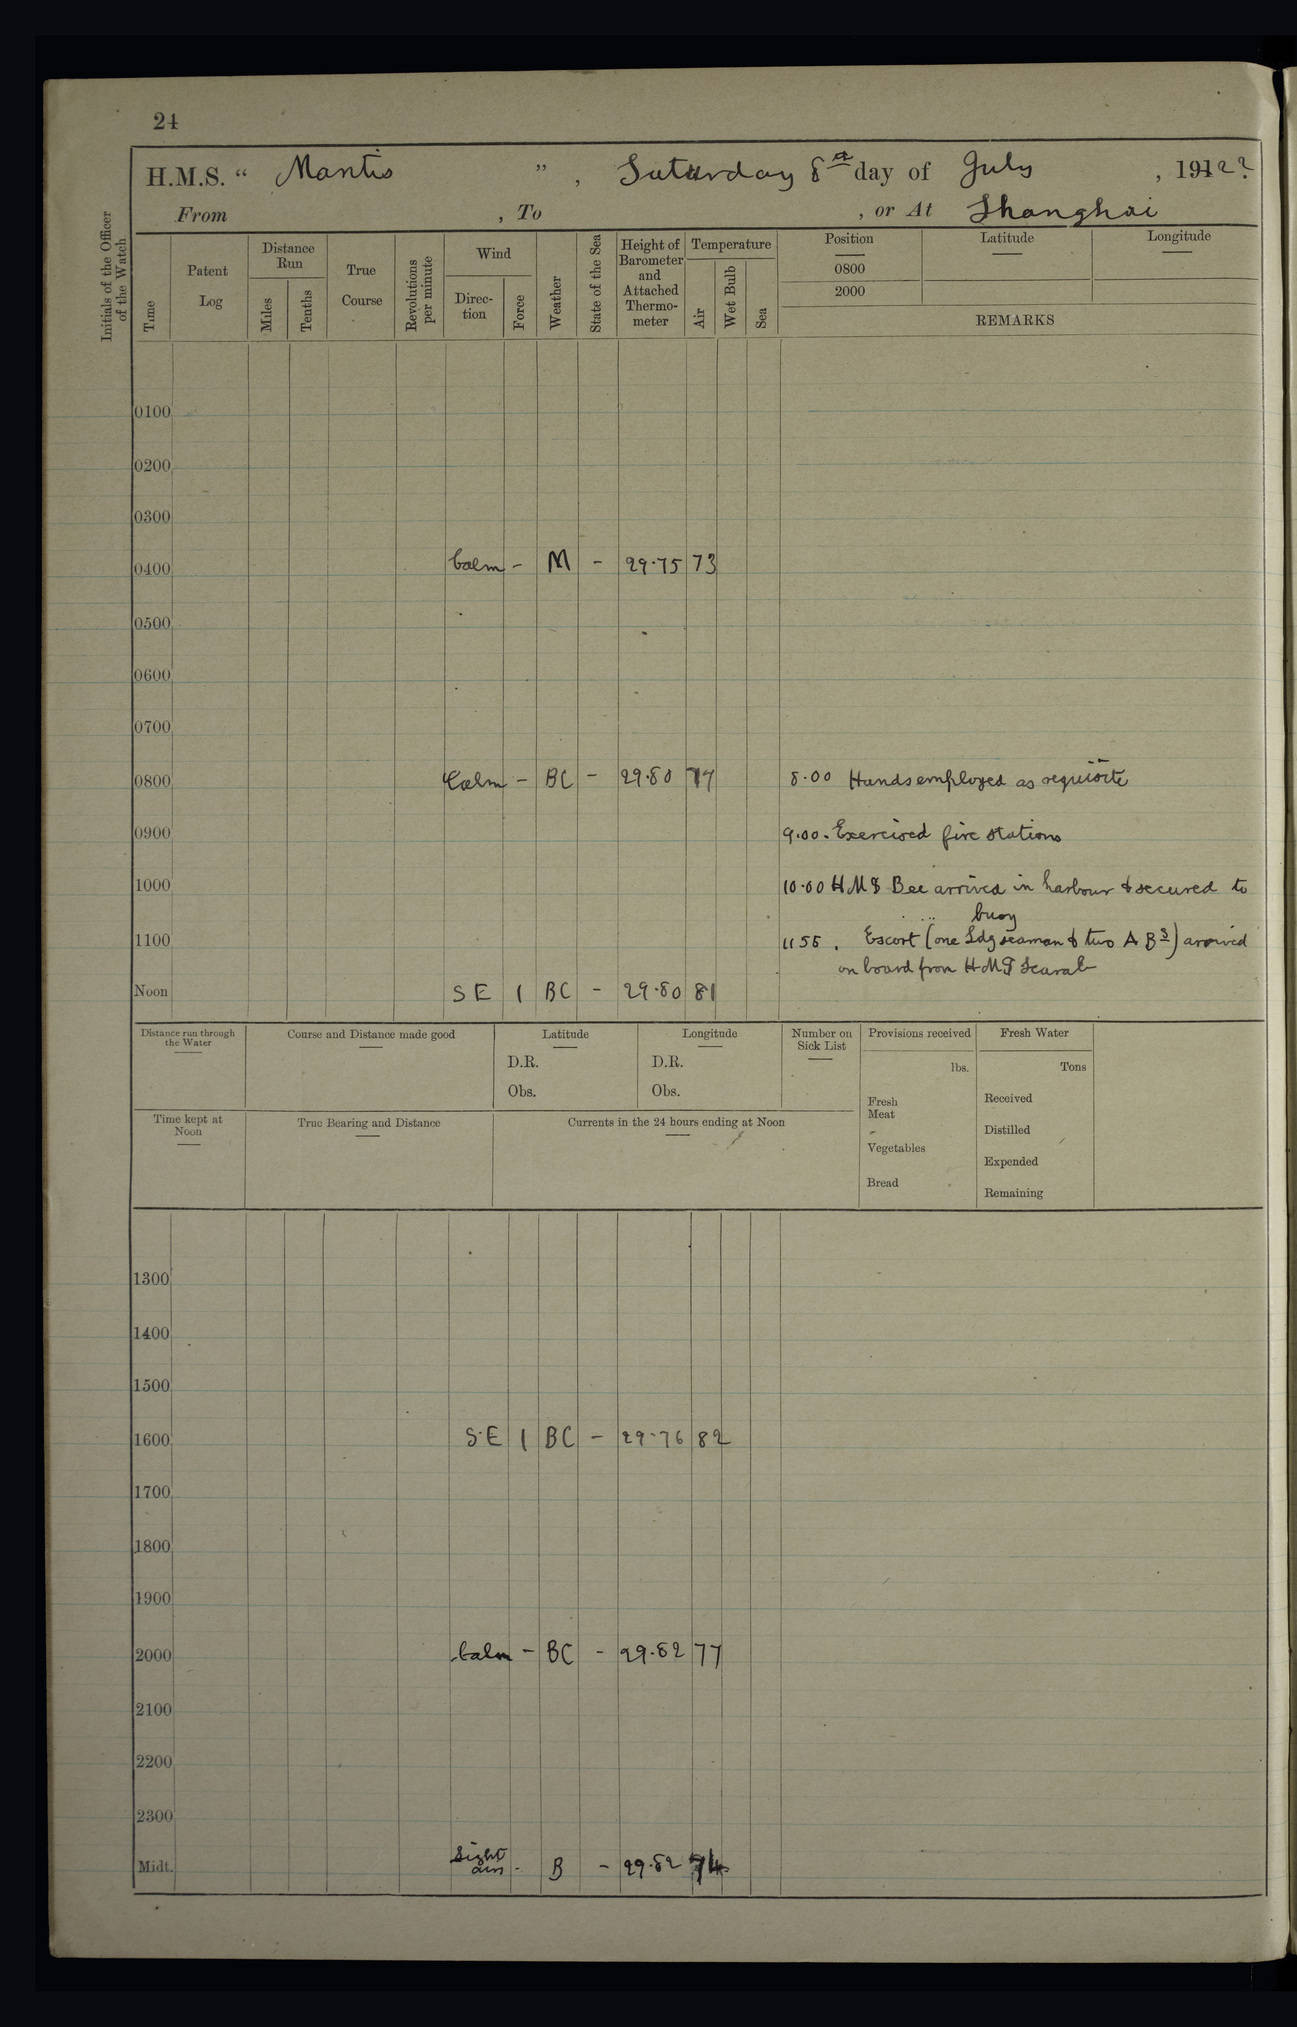 24
H.M.S. “ Mantis ” , Saturday 8th day of July , 1922.
From , To , or At Shanghai
Initials of the Officer of the Watch
Time
Patent Log
Distance Run
Miles
Tenths
True Course
Revolutions per minute
Wind
Direc-tion
Force
Weather
State of the Sea
Height of Barometer and Attached Thermo-meter
Temperature
Air
Wet Bulb
Sea
Position
Latitude
Longitude
0800
2000
REMARKS
0100
0200
0300
0400 Calm - M - 29.75 73
0500
0600
0700
0800 Calm - BC - 29.80 77 8.00 Hands employed as requisite
0900 9.00. Exercised fire stations
1000 10.00 HMS Bee arrived in harbour & secured to
buoy
1100 1155. Escort (one Ldg seaman & two A Bs) arrived
on board from HMS Scarab
Noon SE 1 BC - 29.80 81
Distance run through the Water
Course and Distance made good
Latitude
D.R.
Obs.
Longitude
D.R.
Obs.
Number on Sick List
Provisions received
lbs.
Fresh Meat
Vegetables
Bread
Fresh Water
Tons
Received
Distilled
Expended
Remaining
Time kept at Noon
True Bearing and Distance
Currents in the 24 hours ending at Noon
1300
1400
1500
1600 S.E 1 BC - 29.76 82
1700
1800
1900
2000 Calm - BC - 29.82 77
2100
2200
2300
Light
Midt. airs - B - 29.82 74